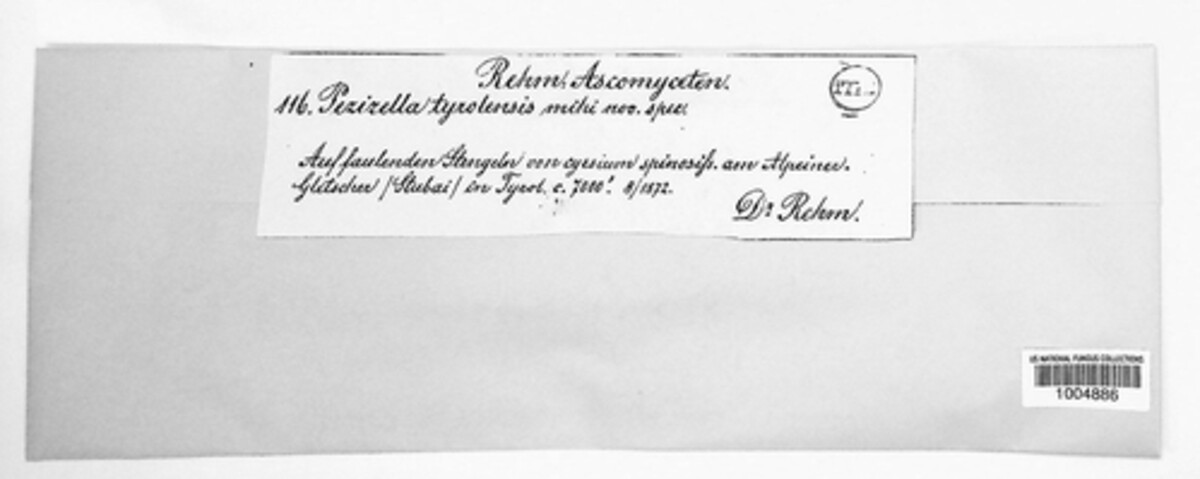 Rehm. Ascomyceten.
116. Pezizella tyrolensis mihi nov. spec.
Auf faulenden Stengeln von cyrsium spinosiss. am Alpeiner-
Gletscher /Stubai/ in Tyrol. c. 7000'. 8/1872.
Dr Rehm.
US NATIONAL FUNGUS COLLECTIONS
1004886